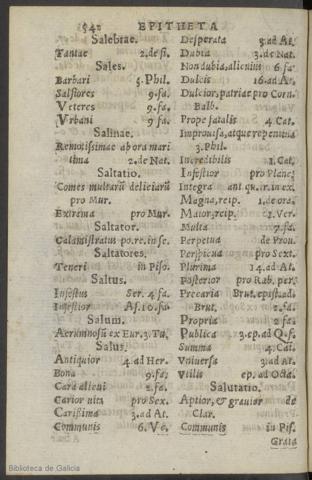 542 EPITHETA
Salebrae.
Tantae 2.de fi.
Sales.
Barbari 5.Phil.
Salsiores 9.fa.
Veteres 9.fa.
Vrbani 9 fa.
Salinae.
Remotissimae ab ora mari
tima 2.de Nat.
Saltatio.
Comes multarū deliciarū
pro Mur.
Extrema pro Mur.
Saltator.
Calamistratus po.re.in se.
Saltatores.
Teneri in Piso.
Saltus.
Infestus Ser.4.fa.
Infestior Af.10.fa.
Salum.
Aerumnosū ex Eur.3.Tu.
Salus.
Antiquior 4.ad Her.
Bona 9.fa.
Cara alieni 2.fa.
Carior uita pro Sex.
Carissima 3.ad At.
Communis 6.Ve.
Desperata 3.ad At.
Dubia 3.de Nat.
Non dubia, alieniui 6.fa.
Dulcis 16.ad At.
Dulcior, patriae pro Corn.
Balb.
Prope fatalis 4.Cat.
Improuisa, atque repentina
3.Phil.
Incredibilis 1.Cat.
Infestior pro Planc.
Integra ant.qu.ir.in ex.
Magna, reip. 1.de ora.
Maior, reip. 1.Ver.
Multa 7.fa.
Perpetua de Prou.
Perspicua pro Sext.
Plurima 14.ad At.
Posterior pro Rab. per.
Precaria Brut.epist.ad.
Brut. 2.fa.
Propria 2.fa.
Publica 3.ep.ad Q.f.
Summa 4.Cat.
Vniuersa 3.ad At.
Vtilis ep.ad Octa.
Salutatio.
Aptior, & grauior de
Clar.
Communis in Pis.
Grata
Biblioteca de Galicia